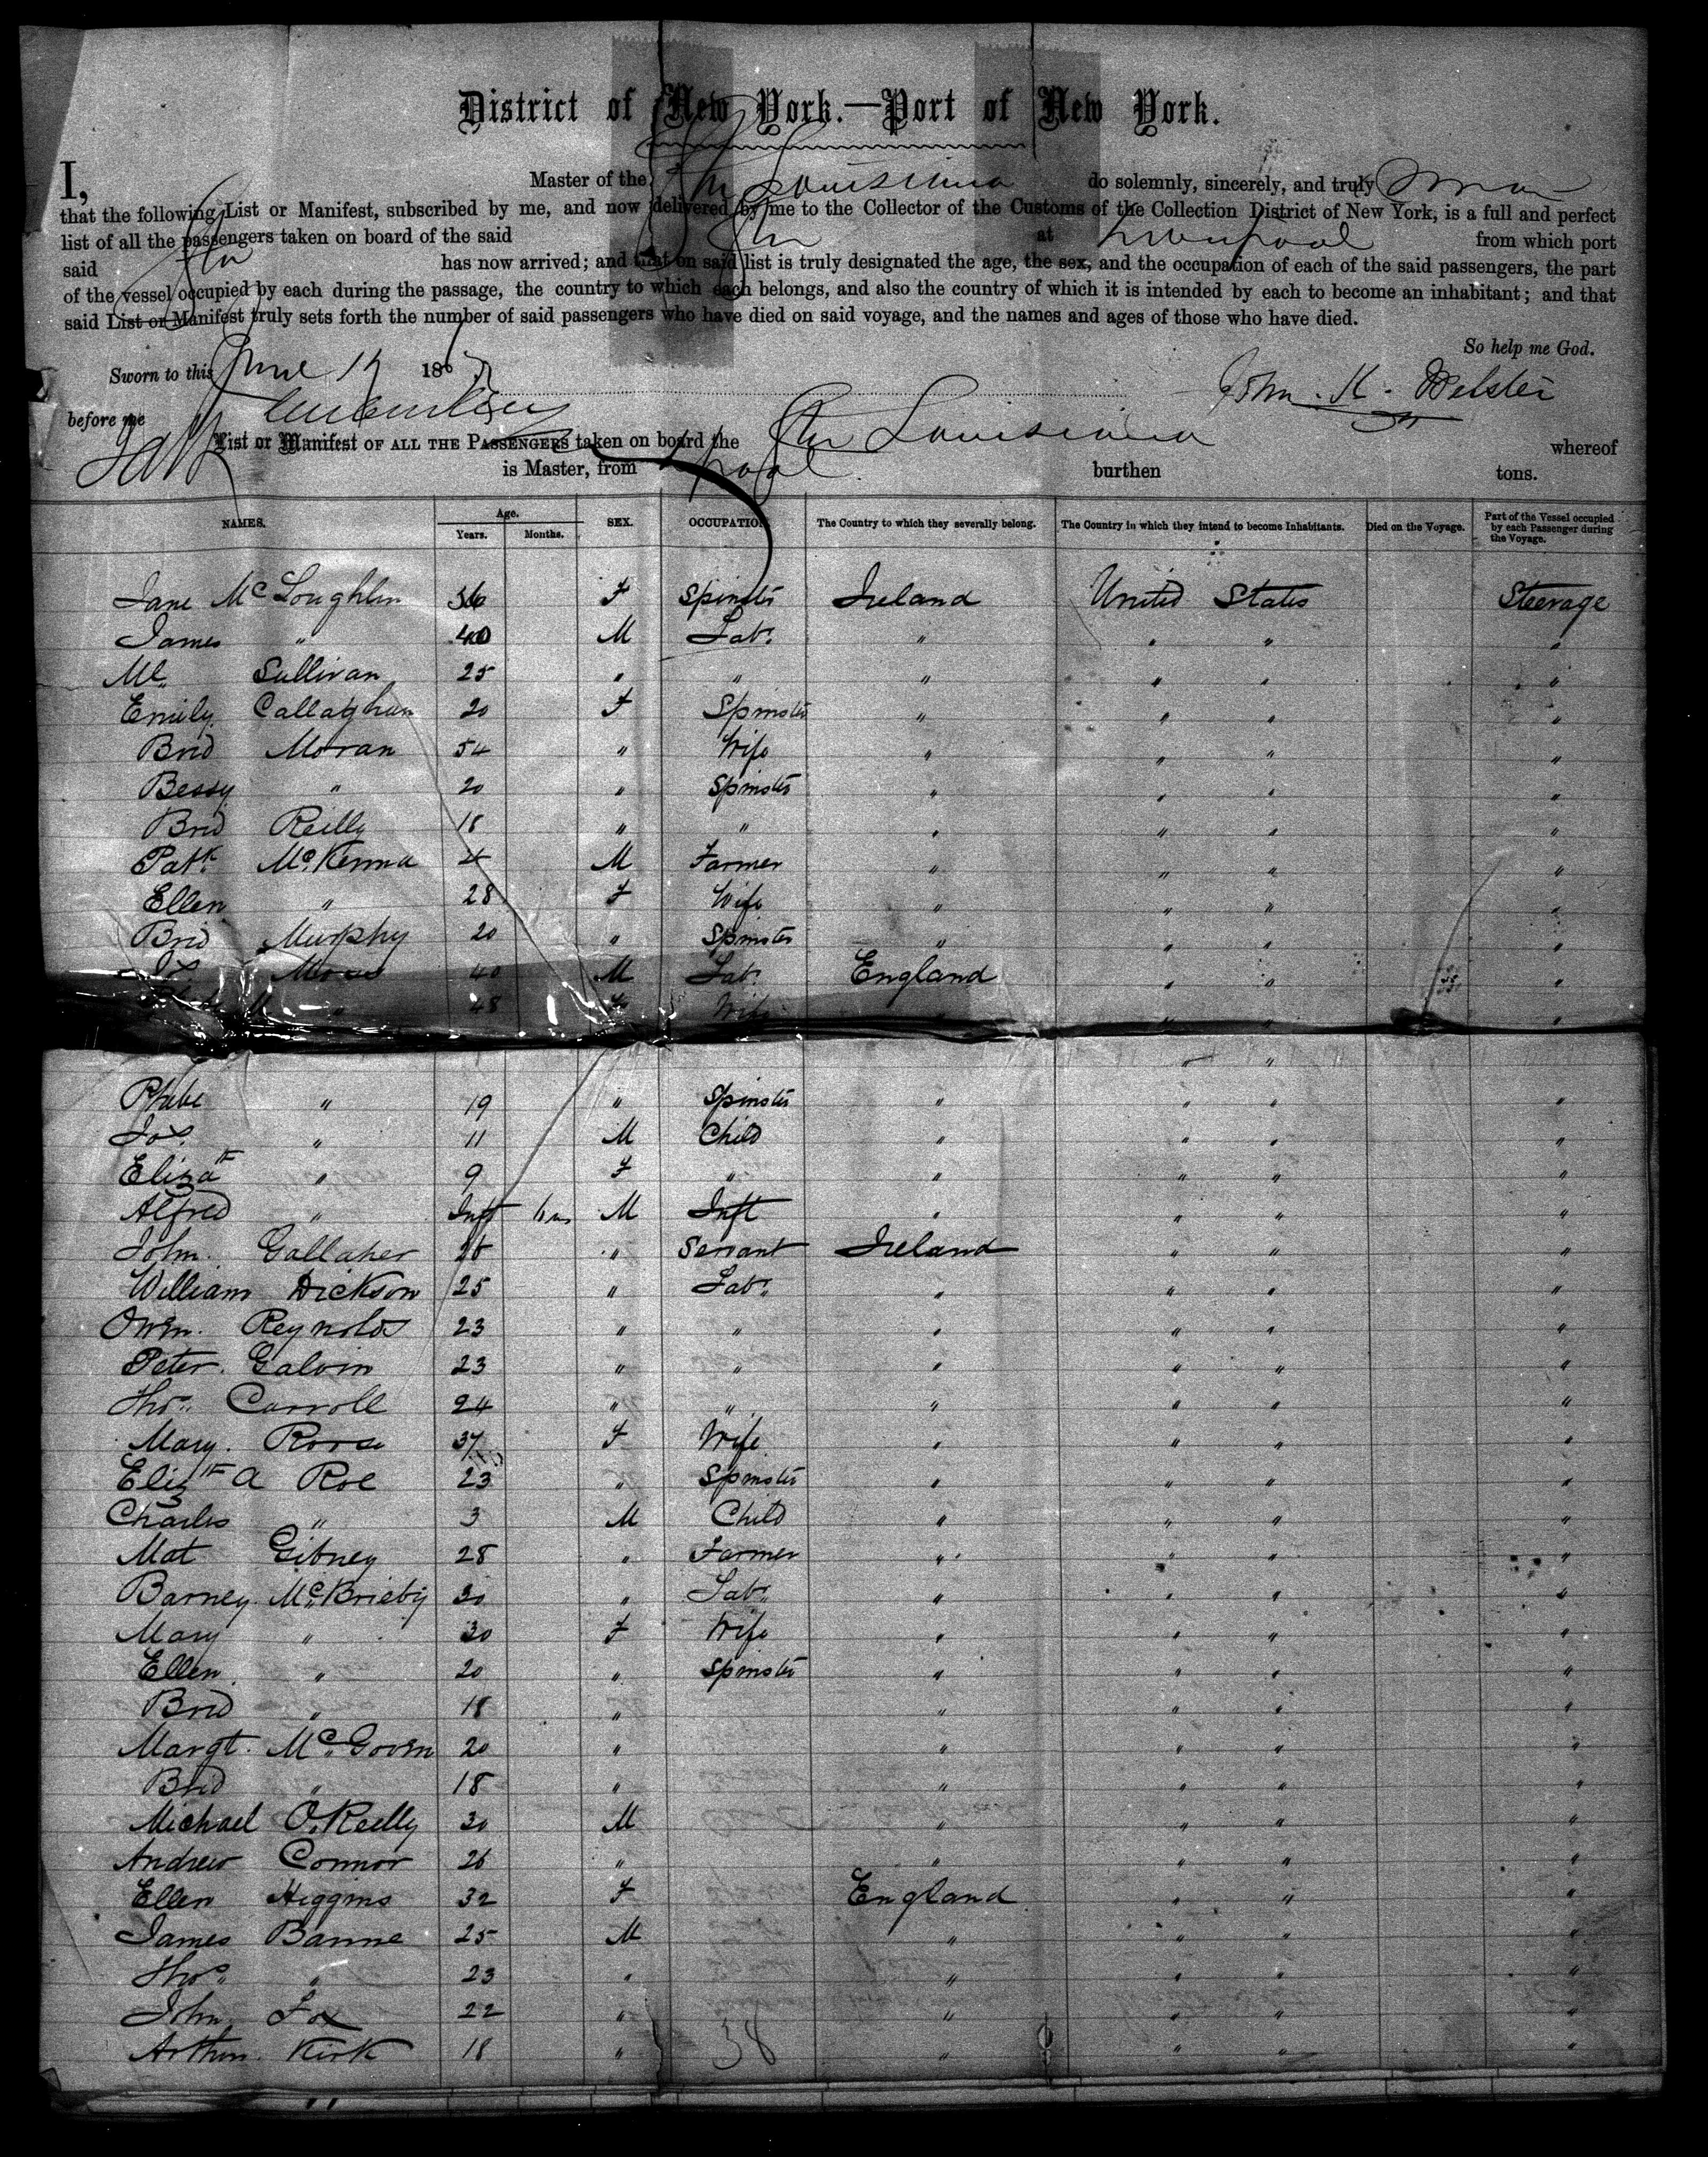 District of New York.—Port of New York.
I, Master of the Str Louisiana do solemnly, sincerely, and truly swear
that the following List or Manifest, subscribed by me, and now delivered by me to the Collector of the Customs of the Collection District of New York, is a full and perfect
list of all the passengers taken on board of the said Str at Liverpool from which port
said Str has now arrived; and that on said list is truly designated the age, the sex, and the occupation of each of the said passengers, the part
of the vessel occupied by each during the passage, the country to which each belongs, and also the country of which it is intended by each to become an inhabitant; and that
said List or Manifest truly sets forth the number of said passengers who have died on said voyage, and the names and ages of those who have died.
So help me God.
Sworn to this June 186
before me John. K. Webster
List or Manifest OF ALL THE PASSENGERS taken on board the Str Louisiana whereof
is Master, from Lpool burthen tons.
NAMES. Age. Years. Months. SEX. OCCUPATION. The Country to which they severally belong. The Country in which they intend to become Inhabitants. Died on the Voyage. Part of the Vessel occupied by each Passenger during the Voyage.
Jane McLoughlin 36 F Spinster Ireland United States Steerage
James " 40 M Lab. " " " "
Ml. Sullivan 25 " " " " " "
Emily Callaghan 20 F Spinster " " " "
Brid Moran 54 " Wife " " " "
Bessy " 20 " Spinster " " " "
Brid Reilly 18 " " " " " "
Patk McKenna M Farmer " " " "
Ellen " 28 F Wife " " " "
Brid Murphy 20 " Spinster " " " "
40 M Lab. England " " "
" 48 F Wife " " " "
" "
Phebe " 19 " Spinster " " " "
Jos. " 11 M Child " " " "
Elizath " 9 F " " " " "
Alfred " Inft M Inft " " " "
John. Gallaher 26 " Servant Ireland " " "
William Dickson 25 " Lab. " " " "
Owen. Reynolds 23 " " " " " "
Peter. Galvin 23 " " " " " "
Thos. Carroll 24 " " " " " "
Mary. 37 F Wife " " " "
Elizth A Roe 23 " Spinster " " " "
Charles " 3 M Child " " " "
Mat Gibney 28 " Farmer " " " "
Barney. 30 " Lab. " " " "
Mary " 30 F Wife " " " "
Ellen " 20 " Spinster " " " "
Brid " 18 " " " " "
Margt. McGovern 20 " " " " "
Brid " 18 " " " " "
Michael O.Reilly 30 M " " " "
Andrew Connor 26 " " " " "
Ellen Higgins 32 F England " " "
James Banne 25 M " " " "
Thos. " 23 " " " " "
John Fox 22 " " " " "
Arthur. Kirk 18 " " " " "
38